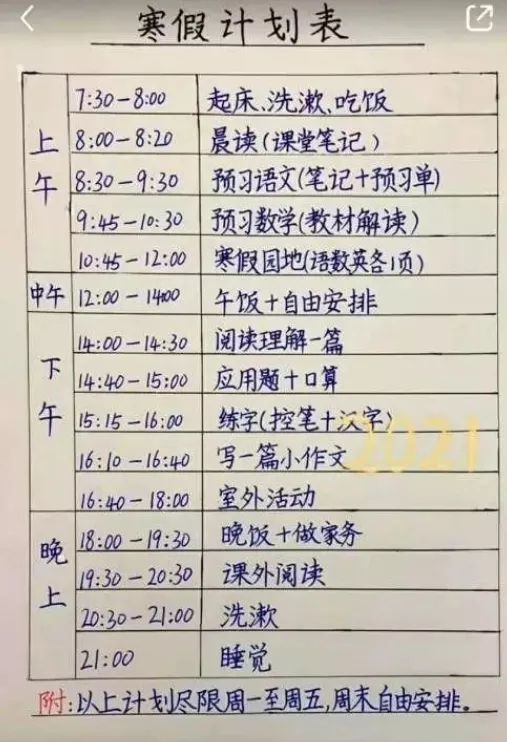 寒假计划表
上午
7:30-8:00 起床、洗漱、吃饭
8:00-8:20 晨读(课堂笔记)
8:30-9:30 预习语文(笔记+预习单)
9:45-10:30 预习数学(教材解读)
10:45-12:00 寒假园地(语数英各1页)
中午
12:00-1400 午饭+自由安排
下午
14:00-14:30 阅读理解一篇
14:40-15:00 应用题+口算
15:15-16:00 练字(控笔+汉字)
16:10-16:40 写一篇小作文
2021
16:40-18:00 室外活动
晚上
18:00-19:30 晚饭+做家务
19:30-20:30 课外阅读
20:30-21:00 洗漱
21:00 睡觉
附:以上计划尽限周一至周五,周末自由安排。